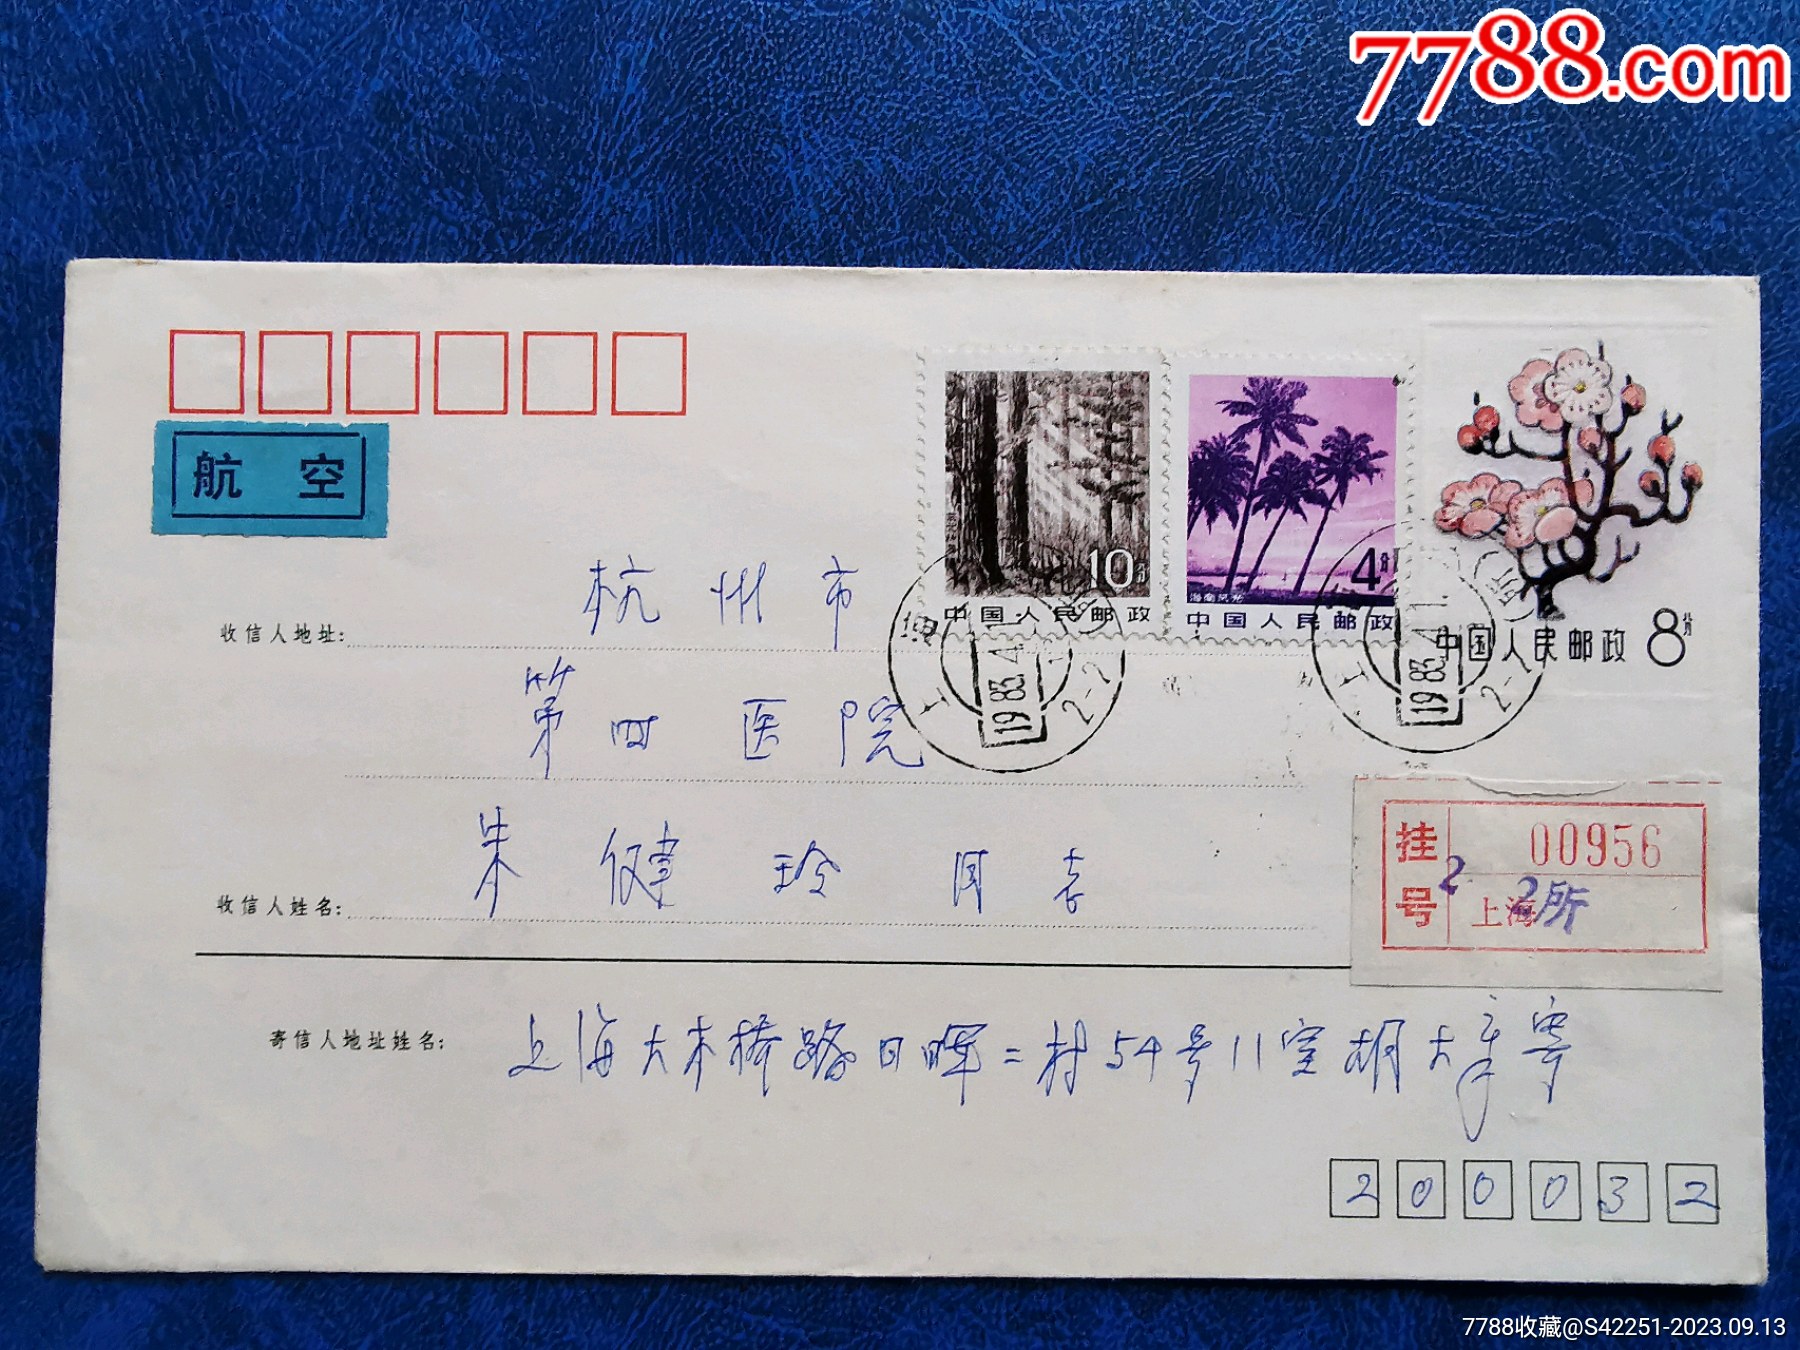 7788.com
航 空
10分
中国人民邮政
4分
海南风光
中国人民邮政
中国人民邮政 8分
上海
1983.4.1
2-2
上海
1983.4.1
2-2
收信人地址: 杭州市
第四医院
收信人姓名: 朱健玲同志
挂号 00956
2
上海 2所
寄信人地址姓名: 上海大木桥路日晖二村54号11室胡大年寄
200032
7788收藏@S42251-2023.09.13